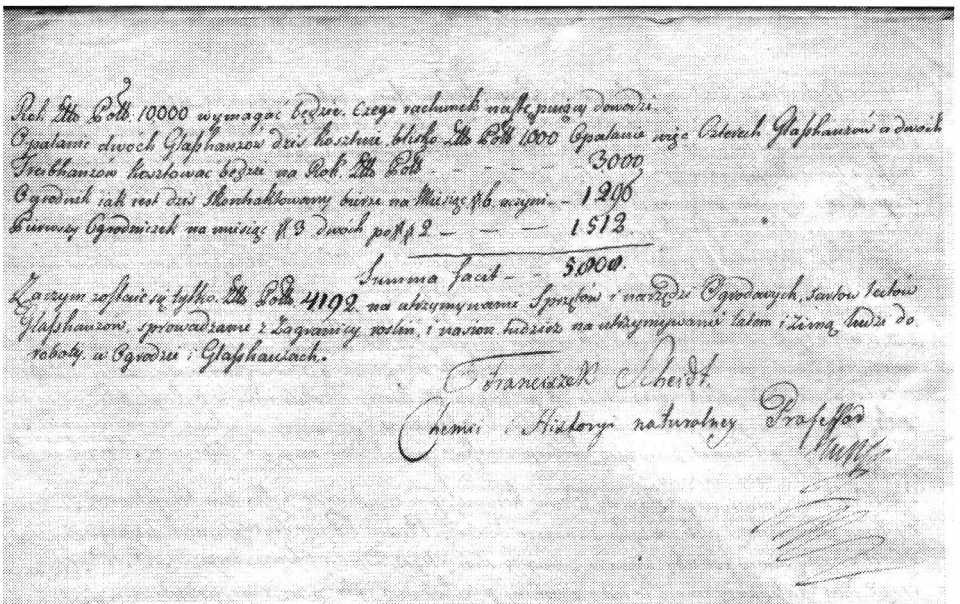 Rok Złło Pols. 10000 wymagać będzie. czego rachunek nastę puiący dowodzi.
Opalanie dwóch Glaßhanzów dziś kosztuie blisko Złło Pols 1,000 Opalanie więc Czterech Glaßhanzów a dwóch
Treibhanzów kosztować będzie na Rok. Złło Pols - - - - 3,000
Ogrodnik iak iest dziś skontraktowany bierze na Miesiąc # 6. czyni - - 1296
Pierwszy Ogrodniczek na miesiąc # 3 dwóch po # 2 - - - 1512.
Summa facit - - 5,808.
Zaczym zostaie się tylko. Złło Pols 4192. na utrzymywanie Sprzętów i narzędzi Ogrodowych, tectów
Glaßhanzów, sprowadzanie z Zagranicy roslin, i nasion. tudzież na utrzymywanie latem i zimą, ludzi do
roboty, w Ogrodzie i Glaßhauzach.
Franciszek Scheidt.
Chemii i Historyi naturalney Professor